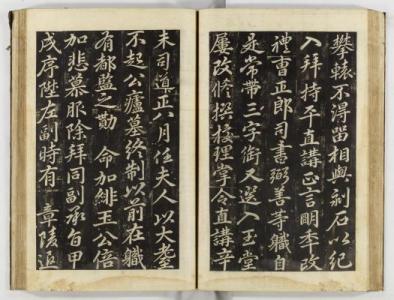 攀轅不得留相與刻石以紀
入拜持平直講正言明年改
禮曺正郎司書弼善等職自
是常帶三字銜又選入玉堂
屢改修撰校理掌令直講辛
未司導正八月任夫人以大耋
不起公廬墓終制以前在職
有都監之勤 命加緋玉公倍
加悲慕服除拜同副承旨甲
戌序陞左副時有 章陵追